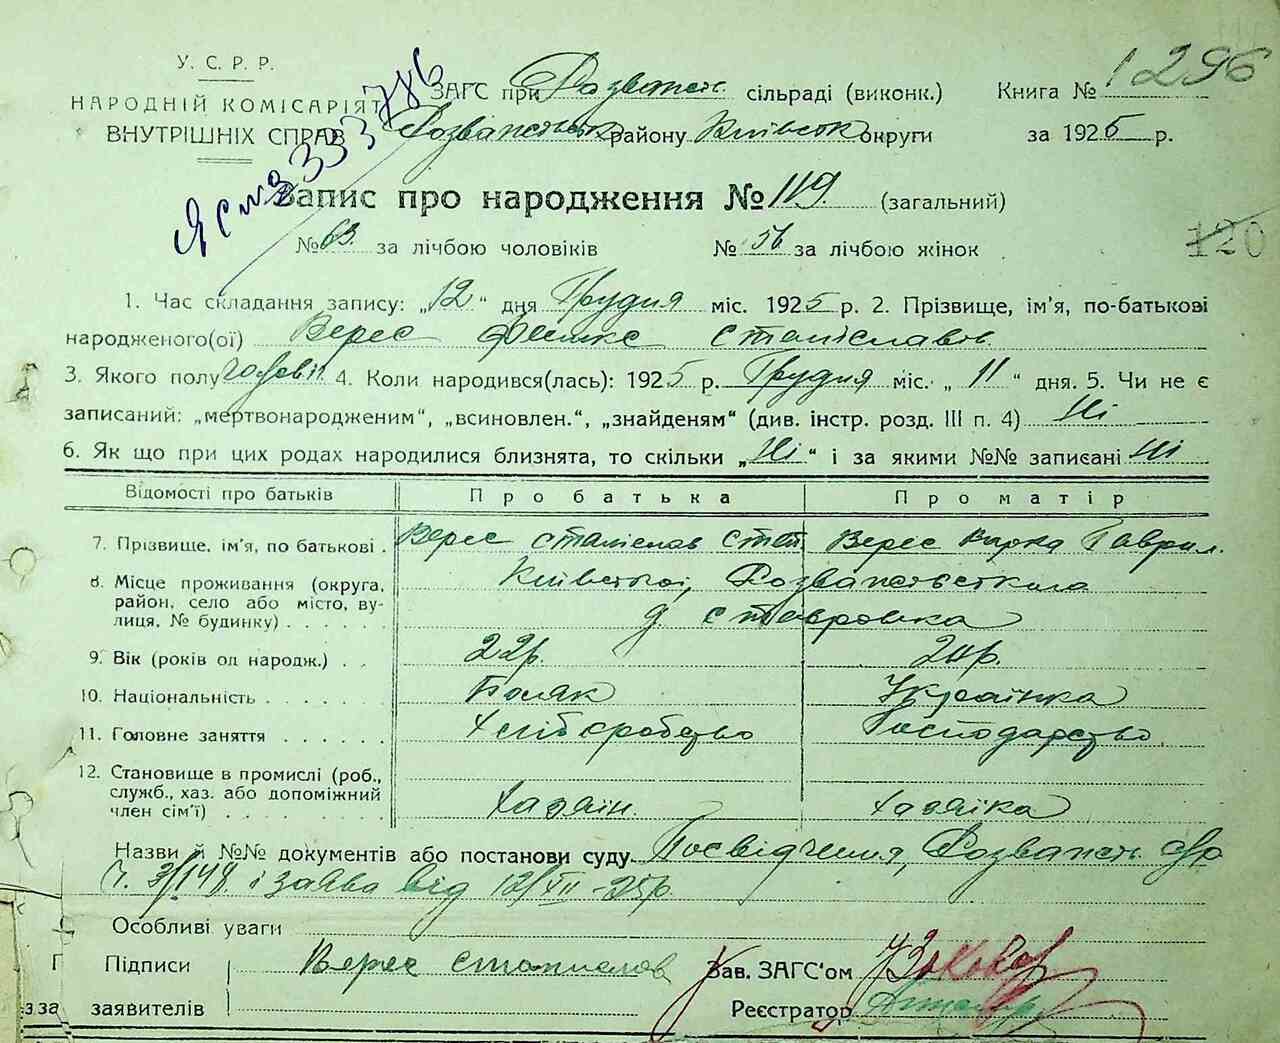 У. С. Р. Р.
НАРОДНІЙ КОМІСАРІЯТ
ВНУТРІШНІХ СПРАВ
ЗАГС при Розважість сільраді (виконк.)
Книга № 1 296
району Київськ округи
за 1925 р.
333786
Запис про народження № 119. (загальний)
№ 63. за лічбою чоловіків № 56 за лічбою жінок
120
1. Час складання запису: „12“ дня Грудня міс. 1925 р. 2. Прізвище, ім'я, по-батькові
народженого(ої) Верес Фелікс Станіславів
3. Якого полу чоловіч. 4. Коли народився(лась): 1925 р. Грудня міс. „11“ дня. 5. Чи не є
записаний: „мертвонародженим“, „всиновлен.“, „знайденям“ (див. інстр. розд. III п. 4) Ні
6. Як що при цих родах народилися близнята, то скільки „Ні“ і за якими №№ записані Ні
Відомості про батьків Про батька Про матір
7. Прізвище, ім'я, по батькові . Верес Станіслав Степ. Верес Гаврил.
8. Місце проживання (округа, район, село або місто, вулиця, № будинку) . . . . . . Київської, Розважського
д. Ставровка
9. Вік (років од народж.) . . 22р. 20р.
10. Національність . . . . . . . Поляк Українка
11. Головне заняття . . . . . . Хлібєробство Господарство
12. Становище в промислі (роб.,
служб., хаз. або допоміжний
член сім'ї) . . . . . . . . . Хазяїн. Хазяіка
Назви й №№ документів або постанови суду. Посвідчення, Розважсть с/р
ч. 3/148. і заява від 12/XII-25р.
Особливі уваги
Підписи Верес Станислав Зав. ЗАГС'ом
заявителів Реєстратор